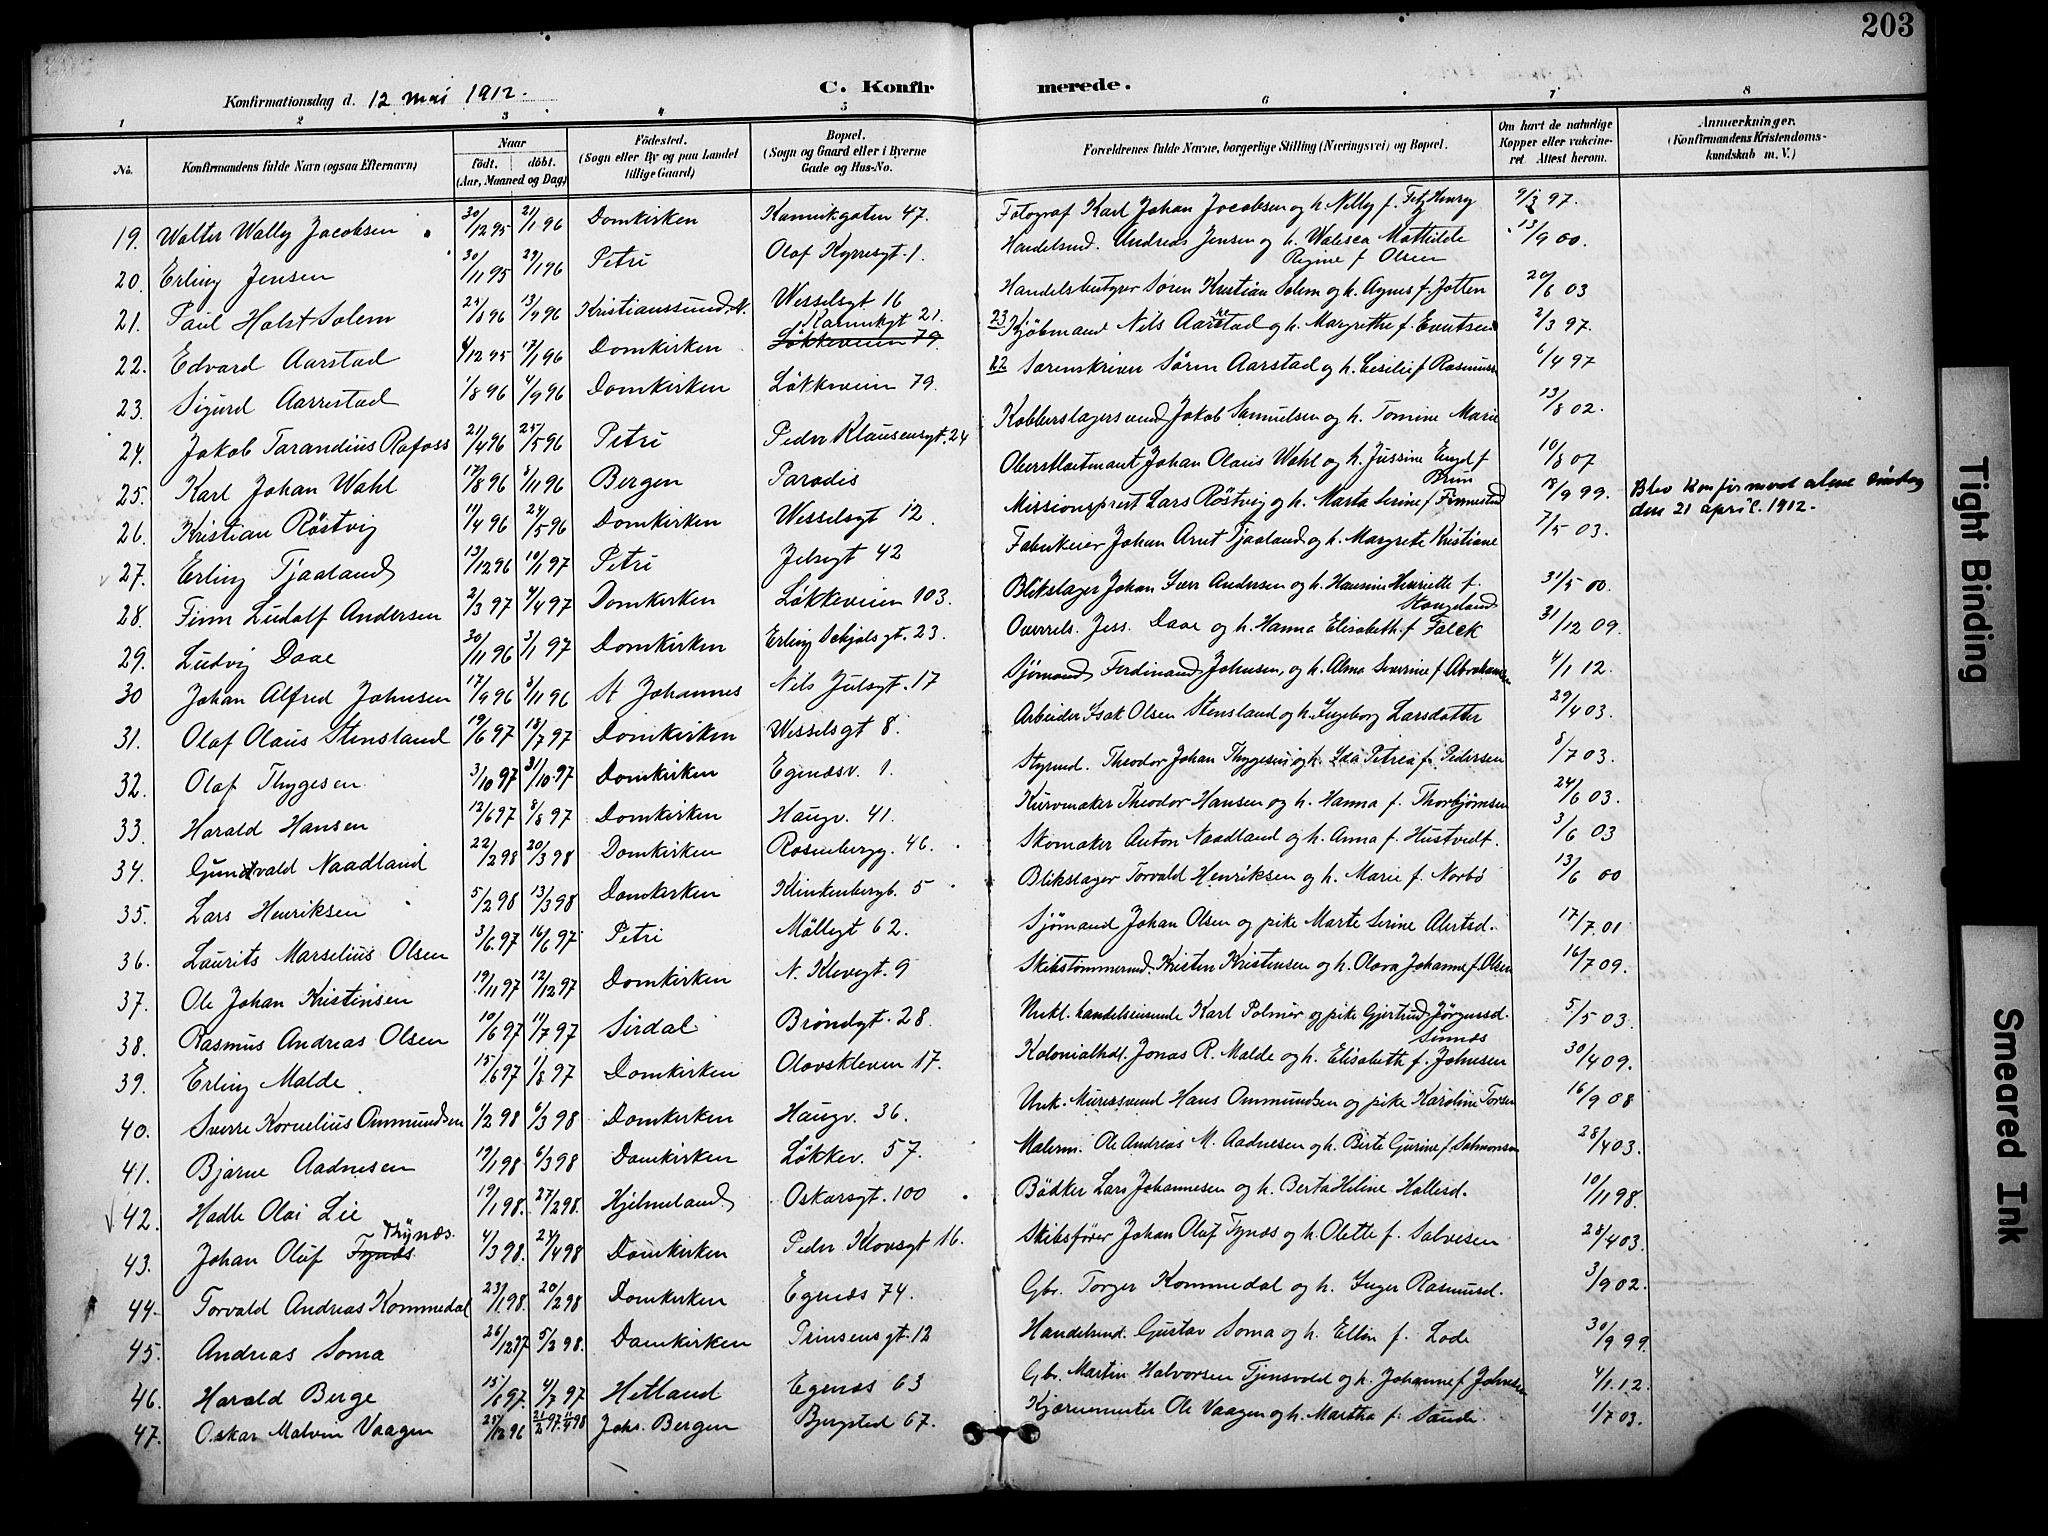 203
Konfirmationsdag d. 12 mai 1912.
C. Konfirmerede.
1 2 3 4 5 6 7 8
No. Konfirmandens fulde Navn (ogsaa Efternavn) Naar födt. döbt. (Aar, Maaned og Dag) Födested. (Sogn eller By og paa Landet tillige Gaard) Bopæl. (Sogn og Gaard eller i Byerne Gade og Hus-No. Forældrenes fulde Navne, borgerlige Stilling (Næringsvei) og Bopæl. Om havt de naturlige Kopper eller vaccineret. Attest herom. Anmærkninger. (Konfirmandens Kristendomskundskab m. V.)
19. Walter Wally Jacobsen 30/12 95 21/1 96 Domkirken Kannikgaten 47. Fotograf Karl Johan Jacobsen og h. Nelly f. Fitz Henry 9/3 97.
20. Erling Jensen 30/11 95 29/1 96 Petri Olaf Kyrresgt. 1. Handelsmd. Andreas Jensen og h. Walesca Mathilde Regine f Olsen 13/9 00.
21. Paul Holst Solem 24/8 96 13/9 96 Kristianssund N. Wesselsgt 16 Handelsbestyrer Søren Kristian Solem og h. Agnes f. Jotten 20/6 03
22. Edvard Aarstad 4/12 95 17/1 96 Domkirken Kannikgt 21. Løkkeveien 79. 23 Kjøbmand Nils Aarstad og h. Margrethe f. Enutsen 2/3 97.
23. Sigurd Aarrestad 1/8 96 4/9 96 Domkirken Løkkeveien 79. 22 Sorenskriver Sørin Aarstad og h. Cecilie f Rasmuss 6/4 97
24. Jakob Tarandius Rafoss 21/4 96 25/5 96 Petri Peder Klausensgt. 24 Kobberslagersvend Jakob Samuelsen og h. Tomine Marie 13/8 02.
25. Karl Johan Wahl 17/8 96 8/11 96 Bergen Paradis Oberstløitnant Johan Olaus Wahl og h. Jussine Engel f Brun 10/8 07
26. Kristian Röstvig 11/4 96 24/5 96 Domkirken Wesselsgt 12. Missionsprest Lars Röstvig og h. Marta Serine f Finnestad 18/9 99. Blev konfirmeret alene söndag den 21 april. 1912.
27. Erling Tjaaland 13/12 96 10/1 97 Petri Jelsgt 42 Fabrikeier Johan Arnt Tjaaland og h. Margrete Kristiane 7/5 03.
28. Finn Ludolf Andersen 2/3 97 4/4 97 Domkirken Løkkeveien 103. Blikslager Johan Sverr Andersen og h. Hansine Henriette f. Stangeland 31/5 00.
29. Ludvig Daae 30/11 96 3/1 97 Domkirken Erling Schjalsgt. 23. Overrels. Jess. Daae og h. Hanna Elisabeth f Falck 31/12 09.
30 Johan Alfred Johnsen 17/9 96 8/11 96 St Johannes Nils Julsgt. 17 Sjømand Ferdinand Johnsen, og h. Alma Severine f Abrahamsen 4/1 12.
31. Olaf Olaus Stensland 19/6 97 18/7 97 Domkirken Wesselsgt 8. Arbeider Isak Olsen Stensland og h. Ingeborg Larsdatter 29/4 03.
32. Olaf Thygesen 3/10 97 31/10 97 Domkirken Egenæsv. 1. Styrmd. Theodor Johan Thygesen og h. Ida Petrea f. Pedersen 8/7 03.
33. Harald Hansen 12/6 97 8/8 97 Domkirken Haugv. 41. Kurvmaker Theodor Hansen og h. Hanna f. Thorbjørnsen 24/6 03.
34. Gunvald Naadland 22/2 98 20/3 98 Domkirken Rosenbergg. 46. Skomaker Anton Naadland og h. Anna f. Hustvedt. 3/6 03
35. Lars Henriksen 5/2 98 13/3 98 Domkirken Klinkenbergb. 5 Blikslager Torvald Henriksen og h. Marie f. Norbö 13/6 00
36. Laurits Marselius Olsen 3/6 97 16/6 97 Petri Möllegt 62. Sjømand Johan Olsen og pike Marte Serine Alertsd. 17/7 01
37. Ole Johan Kristensen 19/11 97 12/12 97 Domkirken N. Klevegt. 9 Skibstömmermd Kristen Kristensen og h. Olava Johanne f. Olsen 16/7 09.
38. Rasmus Andreas Olsen 10/6 97 11/7 97 Sirdal Bröndgt. 28. Unkl. handelsreisende Karl Palmer og pike Gjertrud Jörgensd. Sinnæs 5/5 03.
39. Erling Malde 15/6 97 1/8 97 Domkirken Olavskleven 17. Kolonialhdl. Jonas R. Malde og h. Elisabeth f. Johnsen 30/4 09.
40. Sverre Kornelius Ommundsen 1/2 98 6/3 98 Domkirken Haugv. 36. Unk. Murersvend Hans Ommundsen og pike Karoline Torsen 16/9 08
41. Bjarne Aadnesen 19/1 98 6/3 98 Domkirken Løkkev. 57. Malerm. Ole Andreas M. Aadnesen og h. Berte Gurine f. Salmonsen 28/4 03.
42. Hadle Olai Lie 19/1 98. 27/2 98. Hjelmeland Oskarsgt. 100 Bödker Lars Johannesen og h. Berta Heline Hallesd. 10/11 98.
43. Johan Oluf Tynæs Thynæs. 4/3 98. 24/4 98 Domkirken Peder Klowsgt 16. Skibsfører Johan Olaf Tynæs og h. Olette f. Salvesen 28/4 03.
44. Torvald Andreas Kommedal 23/1 98. 20/2 98 Domkirken Egenæs 74. Gbr. Torger Kommedal og h. Inger Rasmusd. 3/9 02.
45. Andreas Soma 26/12 97 5/2 98. Domkirken Prinsensgt. 12 Handelsmd. Gustav Soma og h. Ellin f. Lode 30/9 99.
46. Harald Berge 15/6 97. 4/7 97 Hetland Egenæs 63 Gbr. Martin Halvorsen Tjensvold og h. Johanne f Johnsen 4/1 12.
47. Oskar Malvin Vaagen 25/12 96 21/2 97. 11/4 98 Johs. Bergen Bjergsted 67. Kjærnemester Ole Vaagen og h. Martha f. Sande. 1/7 03.
Tight Binding
Smeared Ink